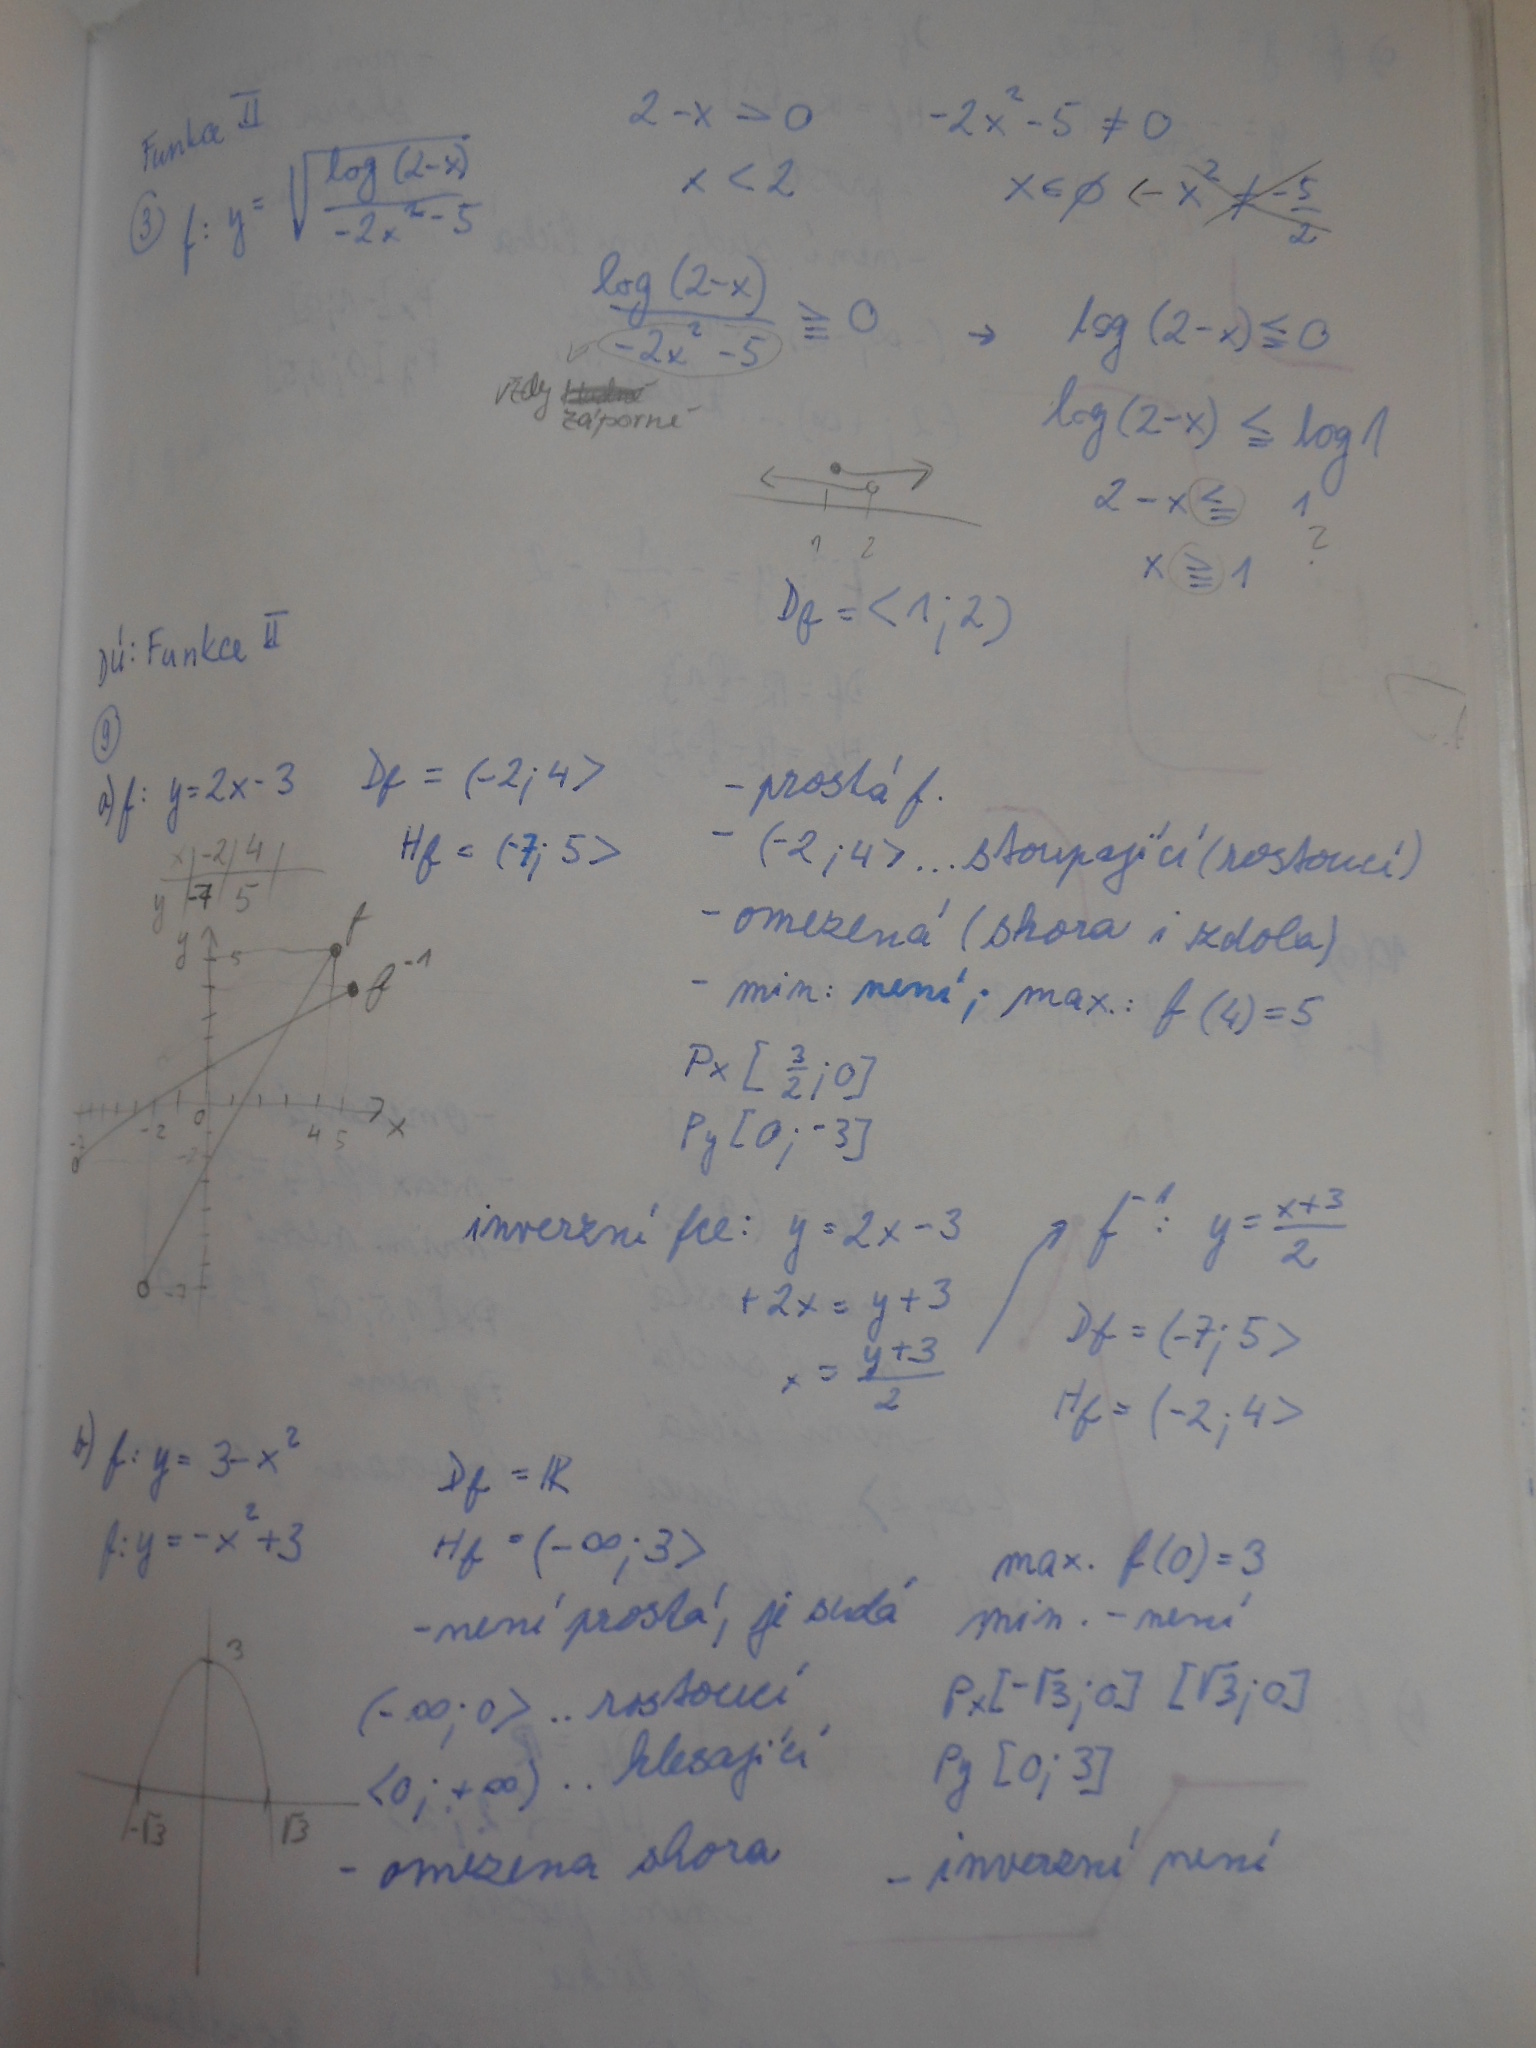 Funkce II
③ f: y = √(log (2-x) / -2x² - 5)
2 - x > 0
x < 2
-2x² - 5 ≠ 0
x ∈ ∅ ← x² ≠ -5/2
log (2-x) / -2x² - 5 ≧ 0 → log (2-x) ≦ 0
vždy
záporné
log (2-x) ≦ log 1
2 - x ≦ 1
?
x ≧ 1
1 2
Df = <1; 2)
DÚ: Funkce II
⑨
a) f: y = 2x - 3
Df = (-2; 4>
Hf = (-7; 5>
x | -2 | 4 |
y | -7 | 5
- prostá f.
- (-2; 4> ... stoupající (rostoucí)
- omezená (shora i zdola)
- min: není; max.: f (4) = 5
Px [3/2; 0]
Py [0; -3]
y 5 f
f⁻¹
-7 -2 0 4 5 x
-2
-7
inverzní fce: y = 2x - 3
+2x = y + 3
x = y+3 / 2
f⁻¹: y = x+3 / 2
Df = (-7; 5>
Hf = (-2; 4>
b) f: y = 3 - x²
f: y = -x² + 3
Df = ℝ
Hf = (-∞; 3>
- není prostá, je sudá
(-∞; 0> .. rostoucí
<0; +∞) .. klesající
- omezena shora
max. f(0) = 3
min. - není
Px [-√3; 0] [√3; 0]
Py [0; 3]
- inverzní není
3
-√3 √3